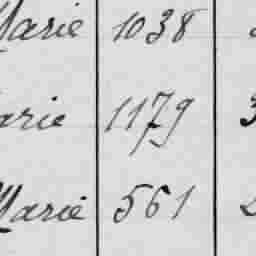 Marie 1038
Marie 1179 3
Marie 561 2